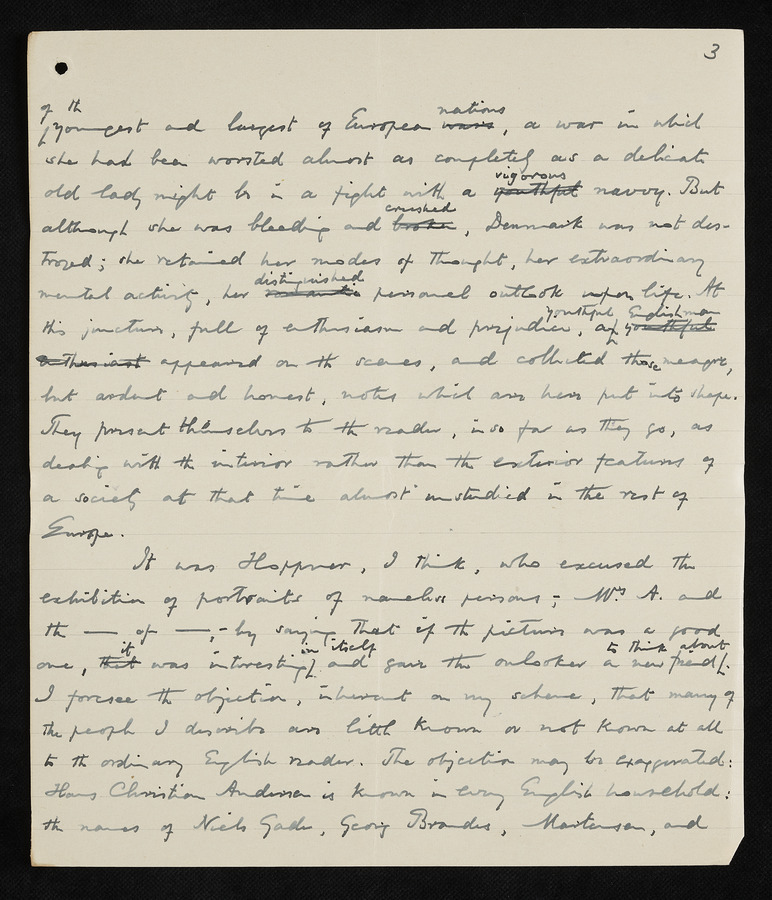 3
of the nations
youngest and largest of European wars, a war in which
she had been worsted almost as completely as a delicate
vigorous
old lady might be in a fight with a youthful navvy. But
crushed
although she was bleeding and broken, Denmark was not des-
troyed; she retained her modes of thought, her extraordinary
distinguished
mental activity, her romantic personal outlook upon life. At
youthful Englishman
this juncture, full of enthusiasm and prejudice, a youthful
enthusiast appeared on the scenes, and collected those meagre,
but ardent and honest, notes which are here put into shape.
They present themselves to the reader, in so far as they go, as
dealing with the interior rather than the exterior features of
a society at that time almost unstudied in the rest of
Europe.
It was Hoppner, I think, who excused the
exhibition of portraits of nameless persons,- Mrs A. and
the — of —,- by saying that if the picture was a good
it in itself to think about
one, that was interesting and gave the onlooker a new friend.
I foresee the objection, inherent on my scheme, that many of
the people I describe are little known or not known at all
to the ordinary English reader. The objection may be exaggerated:
Hans Christian Andersen is known in every English household:
the names of Niels Gade, Georg Brandes, Martensen, and